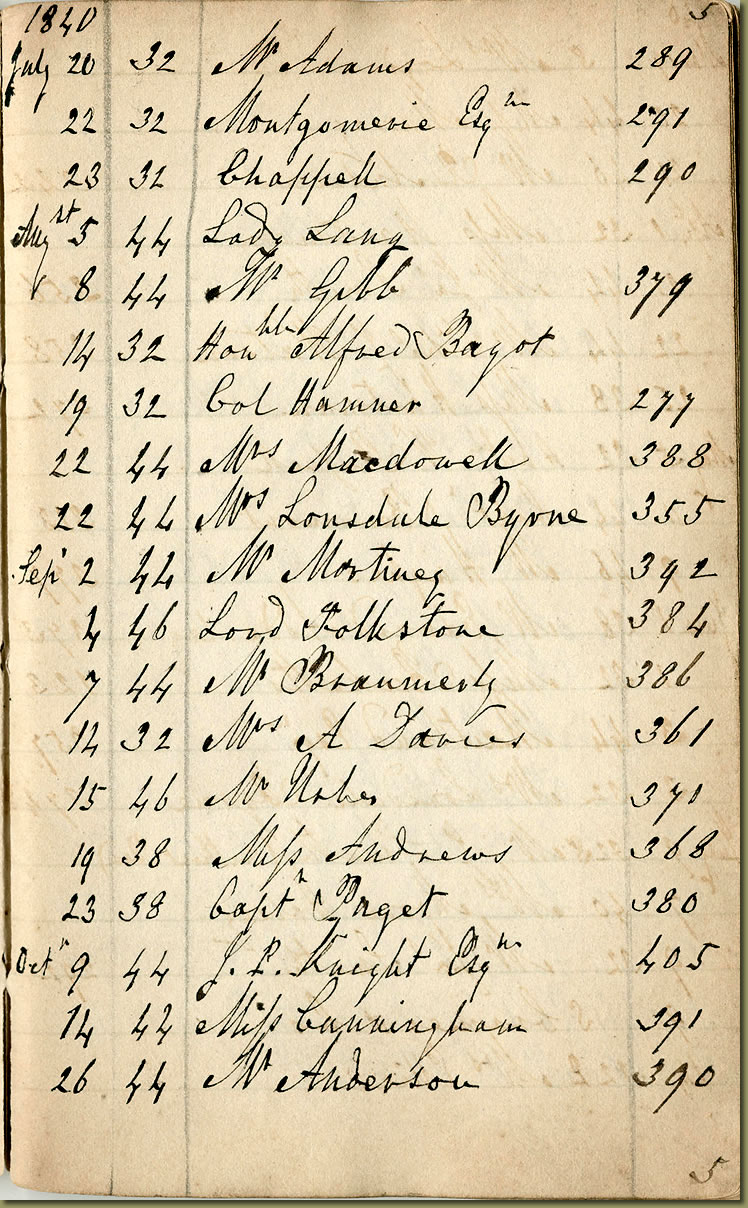 1840 5
July 20 32 Mr Adams 289
22 32 Montgomerie Esqre 291
23 32 Chappell 290
Augst 5 44 Lady Lang
8 44 Mr Gibb 379
14 32 Honble Alfred Bagot
19 32 Col Hamner 277
22 44 Mrs Macdowell 388
22 44 Mrs Lonsdale Byrne 355
Sept 2 44 Mr Martinez 392
4 46 Lord Folkstone 384
7 44 Mr 386
14 32 Mrs A Davies 361
15 46 Mr 371
19 38 Miss Andrews 368
23 38 Captn Paget 380
Octr 9 44 J. P. Knight Esqre 405
14 44 Miss Cunningham 391
26 44 Mr Anderson 390
5